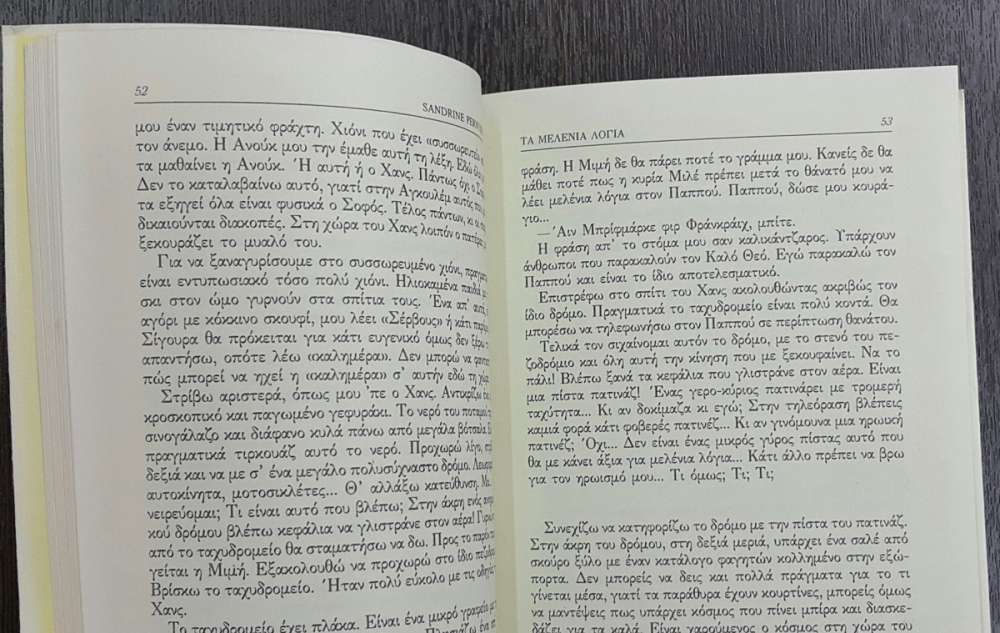 52
SANDRINE
μου έναν τιμητικό φράχτη. Χιόνι που έχει
τον άνεμο. Η Ανούκ μου την έμαθε αυτή τη λέξη. Εδώ
τα μαθαίνει η Ανούκ. Ή αυτή ή ο Χανς. Πάντως όχι ο
Δεν το καταλαβαίνω αυτό, γιατί στην Αγκουλέμ αυτός που
τα εξηγεί όλα είναι φυσικά ο Σοφός. Τέλος πάντων, κι οι
δικαιούνται διακοπές. Στη χώρα του Χανς λοιπόν ο
ξεκουράζει το μυαλό του.
Για να ξαναγυρίσουμε στο συσσωρευμένο χιόνι,
είναι εντυπωσιακό τόσο πολύ χιόνι. Ηλιοκαμένα παιδιά με
σκι στον ώμο γυρνούν στα σπίτια τους. Ένα απ' αυτά,
αγόρι με κόκκινο σκουφί, μου λέει «Σέρβους» ή κάτι
Σίγουρα θα πρόκειται για κάτι ευγενικό όμως δεν ξέρω
απαντήσω, οπότε λέω «καλημέρα». Δεν μπορώ να
πώς μπορεί να ηχεί η «καλημέρα» σ' αυτήν εδώ τη
Στρίβω αριστερά, όπως μου 'πε ο Χανς. Αντικρίζω
κροσκοπικό και παγωμένο γεφυράκι. Το νερό του
σινογάλαζο και διάφανο κυλά πάνω από μεγάλα βότσαλα.
πραγματικά τιρκουάζ αυτό το νερό. Προχωρώ λίγο,
δεξιά και να με σ' ένα μεγάλο πολυσύχναστο δρόμο.
αυτοκίνητα, μοτοσικλέτες... Θ' αλλάξω κατεύθυνση.
νειρεύομαι; Τι είναι αυτό που βλέπω; Στην άκρη ενός
κού δρόμου βλέπω κεφάλια να γλιστράνε στον αέρα!
από το ταχυδρομείο θα σταματήσω να δω. Προς το παρόν
γείται η Μιμή. Εξακολουθώ να προχωρώ στο ίδιο
Βρίσκω το ταχυδρομείο. Ήταν πολύ εύκολο με τις
Χανς.
Το ταχυδρομείο έχει πλάκα. Είναι ένα μικρό γραφείο
53
ΤΑ ΜΕΛΕΝΙΑ ΛΟΓΙΑ
φράση. Η Μιμή δε θα πάρει ποτέ το γράμμα μου. Κανείς δε θα
μάθει ποτέ πως η κυρία Μιλέ πρέπει μετά το θάνατό μου να
λέει μελένια λόγια στον Παππού. Παππού, δώσε μου κουρά-
γιο...
— Άιν Μπρίφμάρκε φιρ Φράνκραϊχ, μπίτε.
Η φράση απ' το στόμα μου σαν καλικάντζαρος. Υπάρχουν
άνθρωποι που παρακαλούν τον Καλό Θεό. Εγώ παρακαλώ τον
Παππού και είναι το ίδιο αποτελεσματικό.
Επιστρέφω στο σπίτι του Χανς ακολουθώντας ακριβώς τον
ίδιο δρόμο. Πραγματικά το ταχυδρομείο είναι πολύ κοντά. Θα
μπορέσω να τηλεφωνήσω στον Παππού σε περίπτωση θανάτου.
Τελικά τον σιχαίνομαι αυτόν το δρόμο, με το στενό του πε-
ζοδρόμιο και όλη αυτή την κίνηση που με ξεκουφαίνει. Να το
πάλι! Βλέπω ξανά τα κεφάλια που γλιστράνε στον αέρα. Είναι
μια πίστα πατινάζ! Ένας γερο-κύριος πατινάρει με τρομερή
ταχύτητα... Κι αν δοκίμαζα κι εγώ; Στην τηλεόραση βλέπεις
καμιά φορά κάτι φοβερές πατινέζ... Κι αν γινόμουνα μια ηρωική
πατινέζ; Όχι... Δεν είναι ένας μικρός γύρος πίστας αυτό που
θα με κάνει άξια για μελένια λόγια... Κάτι άλλο πρέπει να βρω
για τον ηρωισμό μου... Τι όμως; Τι; Τι;
Συνεχίζω να κατηφορίζω το δρόμο με την πίστα του πατινάζ.
Στην άκρη του δρόμου, στη δεξιά μεριά, υπάρχει ένα σαλέ από
σκούρο ξύλο με έναν κατάλογο φαγητών κολλημένο στην εξώ-
πορτα. Δεν μπορείς να δεις και πολλά πράγματα για το τι
γίνεται μέσα, γιατί τα παράθυρα έχουν κουρτίνες, μπορείς όμως
να μαντέψεις πως υπάρχει κόσμος που πίνει μπίρα και διασκε-
δάζει για τα καλά. Είναι χαρούμενος ο κόσμος στη χώρα του